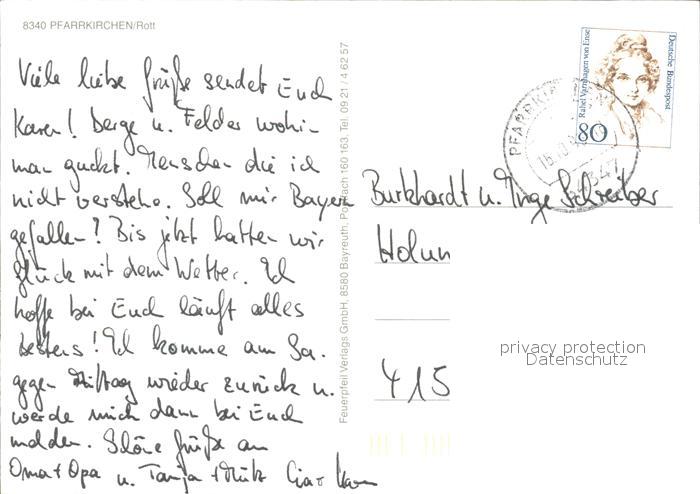 8340 PFARRKIRCHEN/Rott
Viele liebe Grüße sendet Euch
Karen! Berge u. Felder wohin
man guckt. Menschen die ich
nicht verstehe. Soll mir Bayern
gefallen? Bis jetzt hatten wir
Glück mit dem Wetter. Ich
hoffe bei Euch läuft alles
bestens! Ich komme am Sa.
gegen Mittag wieder zurück u.
werde mich dann bei Euch
melden. Schöne Grüße an
Oma + Opa u. Tanja + Ciao Karen
Feuerpfeil Verlags GmbH, 8580 Bayreuth, Postfach 160 163, Tel. 09 21 / 4 62 57
Deutsche Bundespost
Rahel Varnhagen von Ense
80
PFARRKIR
84347
Burkhardt u. Inge Schreiber
Holun
415
privacy protection
Datenschutz